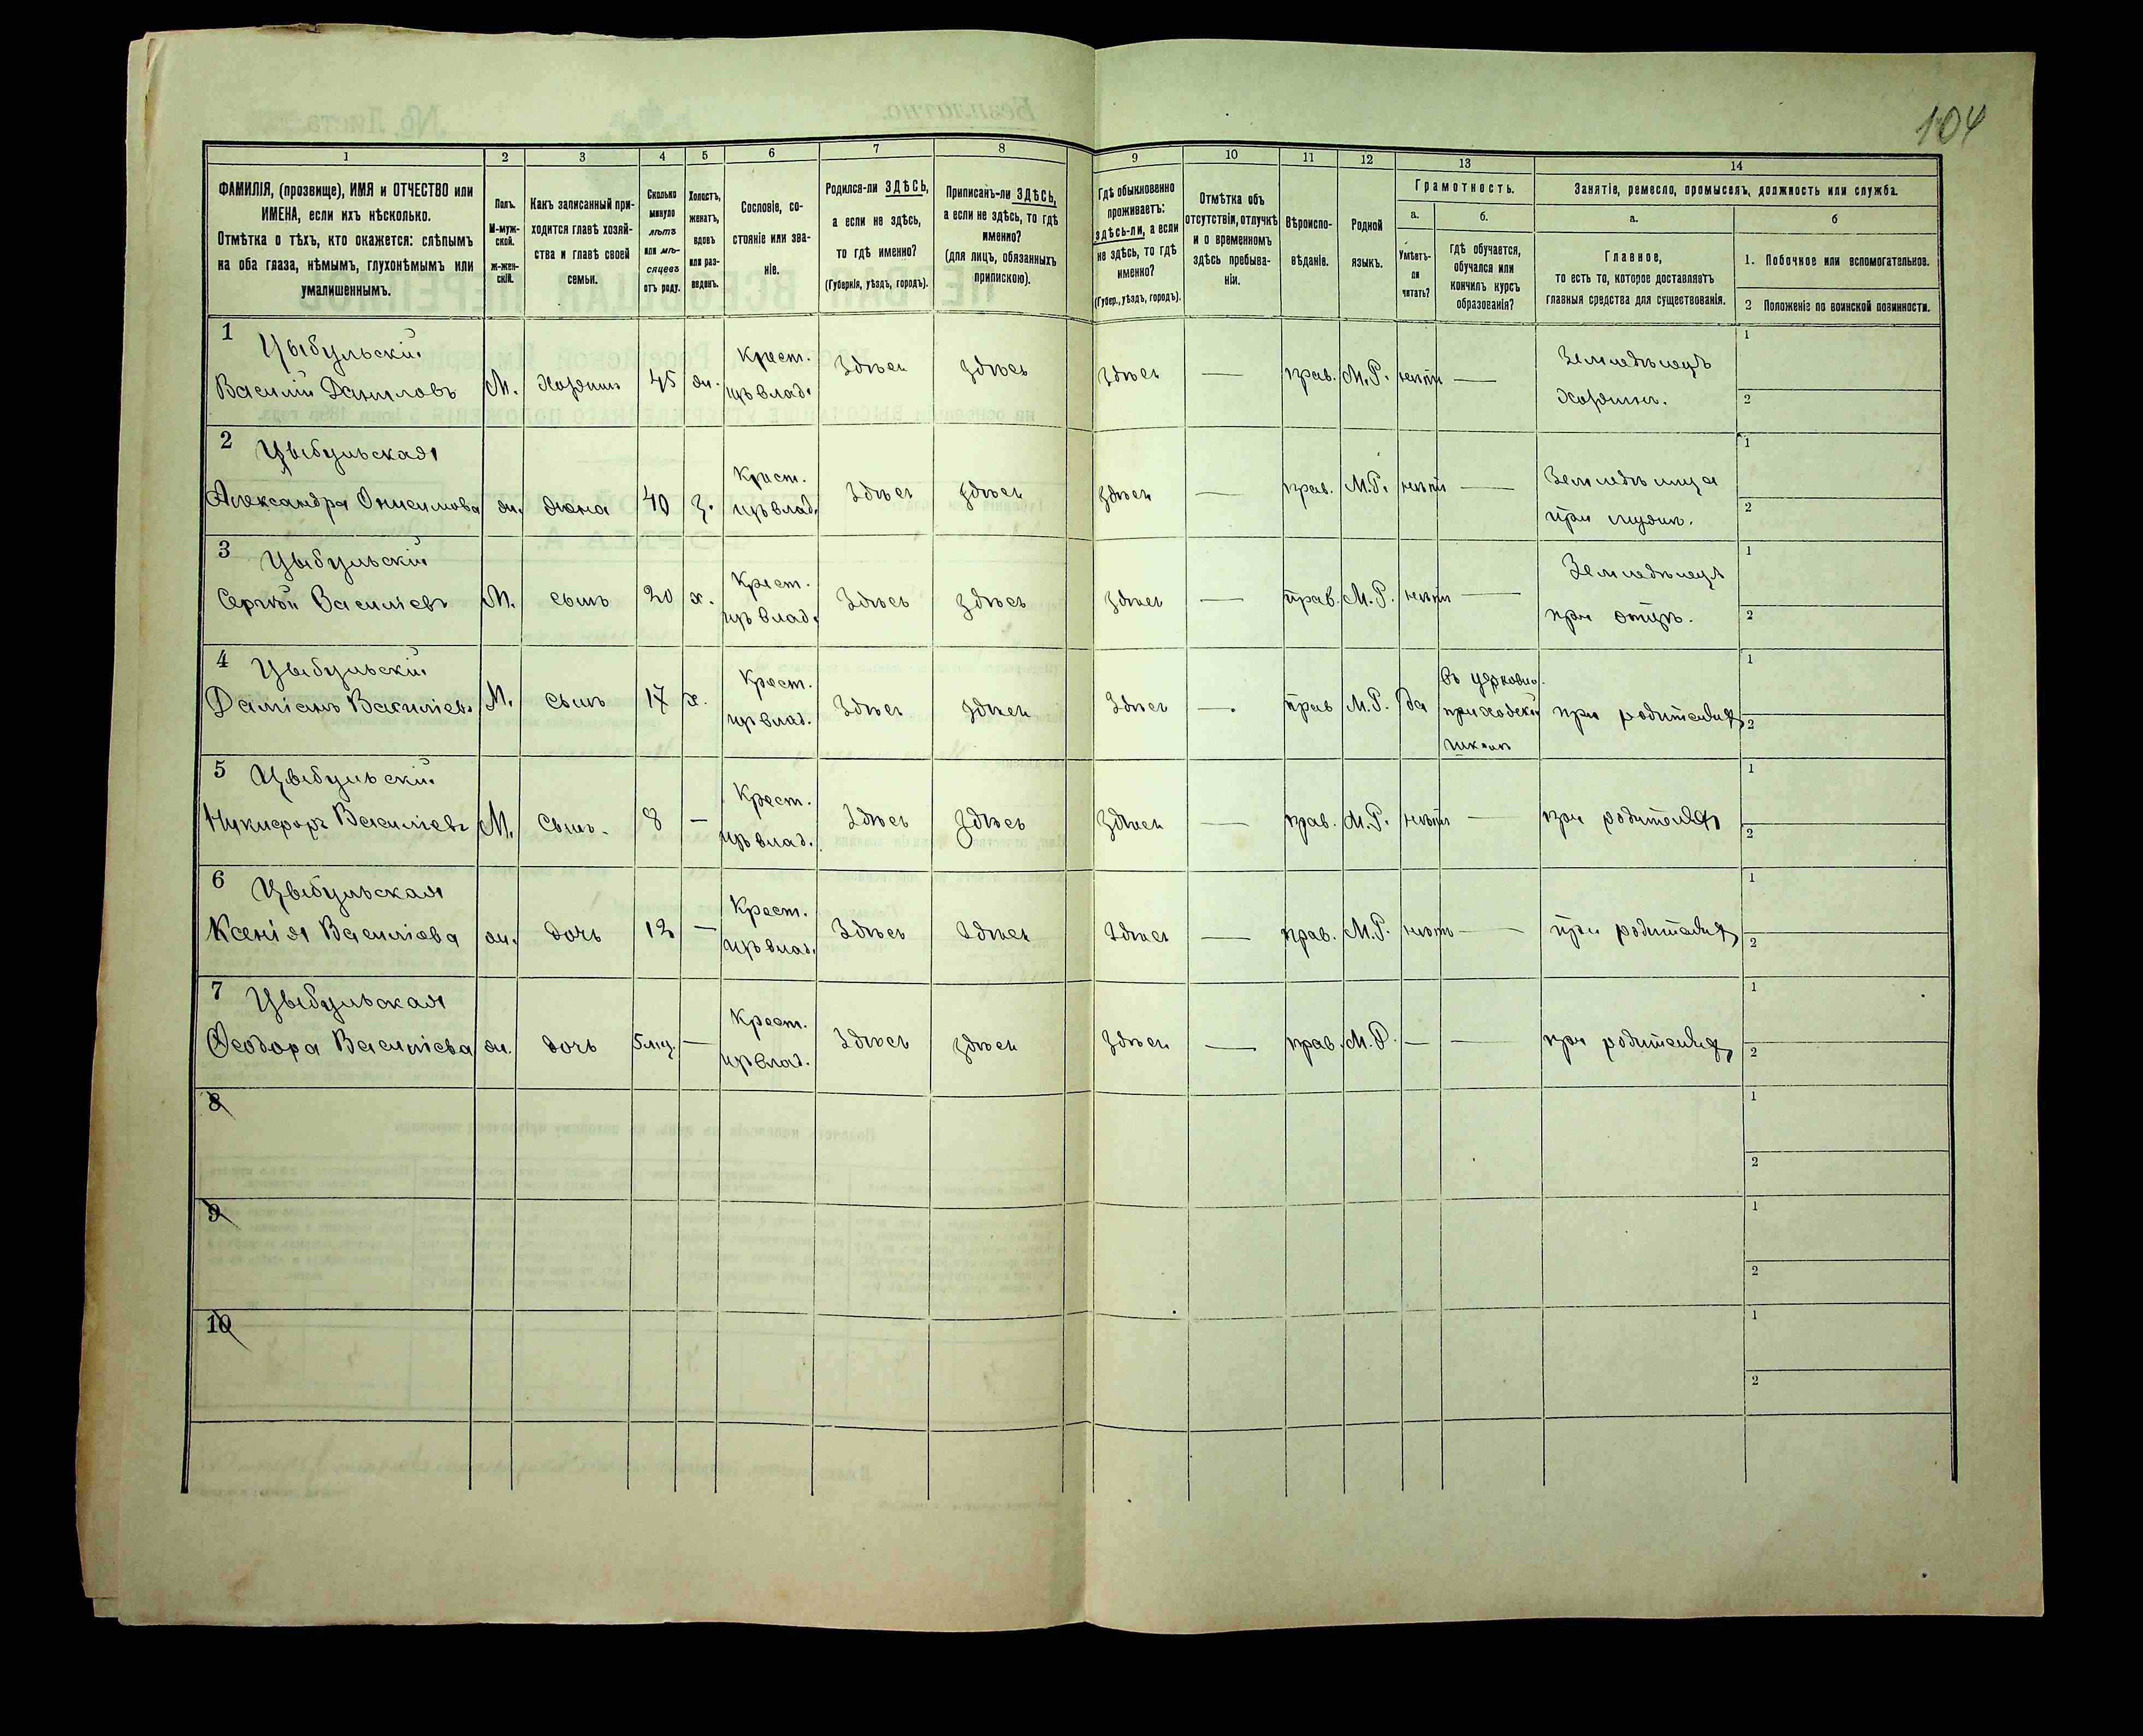 104
1
2
3
4
5
6
7
8
9
10
11
12
13
14
ФАМИЛІЯ, (прозвище), ИМЯ и ОТЧЕСТВО или
ИМЕНА, если ихъ нѣсколько.
Отмѣтка о тѣхъ, кто окажется: слѣпымъ
на оба глаза, нѣмымъ, глухонѣмымъ или
умалишеннымъ.
Полъ.
М-муж-
ской.
Ж-жен-
скій.
Какъ записанный при-
ходится главѣ хозяй-
ства и главѣ своей
семьи.
Сколько
минуло
лѣтъ
или мѣ-
сяцевъ
отъ роду.
Холостъ,
женатъ,
вдовъ
или раз-
веденъ.
Сословіе, со-
стояніе или зва-
ніе.
Родился-ли ЗДѢСЬ,
а если не здѣсь,
то гдѣ именно?
(Губернія, уѣздъ, городъ).
Приписанъ-ли ЗДѢСЬ,
а если не здѣсь, то гдѣ
именно?
(для лицъ, обязанныхъ
припискою).
Гдѣ обыкновенно
проживаетъ:
здѣсь-ли, а если
не здѣсь, то гдѣ
именно?
(Губер., уѣздъ, городъ).
Отмѣтка объ
отсутствіи, отлучкѣ
и о временномъ
здѣсь пребыва-
ніи.
Вѣроиспо-
вѣданіе.
Родной
языкъ.
Грамотность.
а.
б.
Умѣетъ-
ли
читать?
Гдѣ обучается,
обучался или
кончилъ курсъ
образованія?
Занятіе, ремесло, промыселъ, должность или служба.
а.
б
Главное,
то есть то, которое доставляетъ
главныя средства для существованія.
1. Побочное или вспомогательное.
2 Положеніе по воинской повинности.
1 Цыбульскій
Василій Даниловъ М. хозяинъ 45 ж. Крест.
изъ влад. Здѣсь здѣсь здѣсь — прав. М.Р. нѣтъ — Земледѣлецъ
хозяинъ.
1
2
2 Цыбульская
Александра Онисимова ж. жена 40 з. Крест.
изъ влад. Здѣсь здѣсь здѣсь — прав. М.Р. нѣтъ — Земледѣлица
при мужѣ.
1
2
3 Цыбульскій
Сергѣй Василіевъ М. сынъ 20 х. Крест.
изъ влад. Здѣсь здѣсь здѣсь — прав. М.Р. нѣтъ — Земледѣлецъ
при отцѣ.
1
2
4 Цыбульскій
Даміанъ Василіевъ М. сынъ 17 х. Крест.
изъ влад. Здѣсь здѣсь здѣсь — прав М.Р. да въ церковно-
приходской
школѣ при родителяхъ
1
2
5 Цыбульскій
Никифоръ Василіевъ М. сынъ. 8 — Крест.
изъ влад. Здѣсь здѣсь здѣсь — прав. М.Р. нѣтъ — при родителяхъ
1
2
6 Цыбульская
Ксенія Василіева ж. дочь 12 — Крест.
изъ влад. Здѣсь здѣсь здѣсь — прав. М.Р. нѣтъ — при родителяхъ
1
2
7 Цыбульская
Ѳеодора Василіева ж. дочь 5 мц. — Крест.
изъ влад. Здѣсь здѣсь здѣсь — прав. М.Р. — — при родителяхъ
1
2
8
1
2
9
1
2
10
1
2